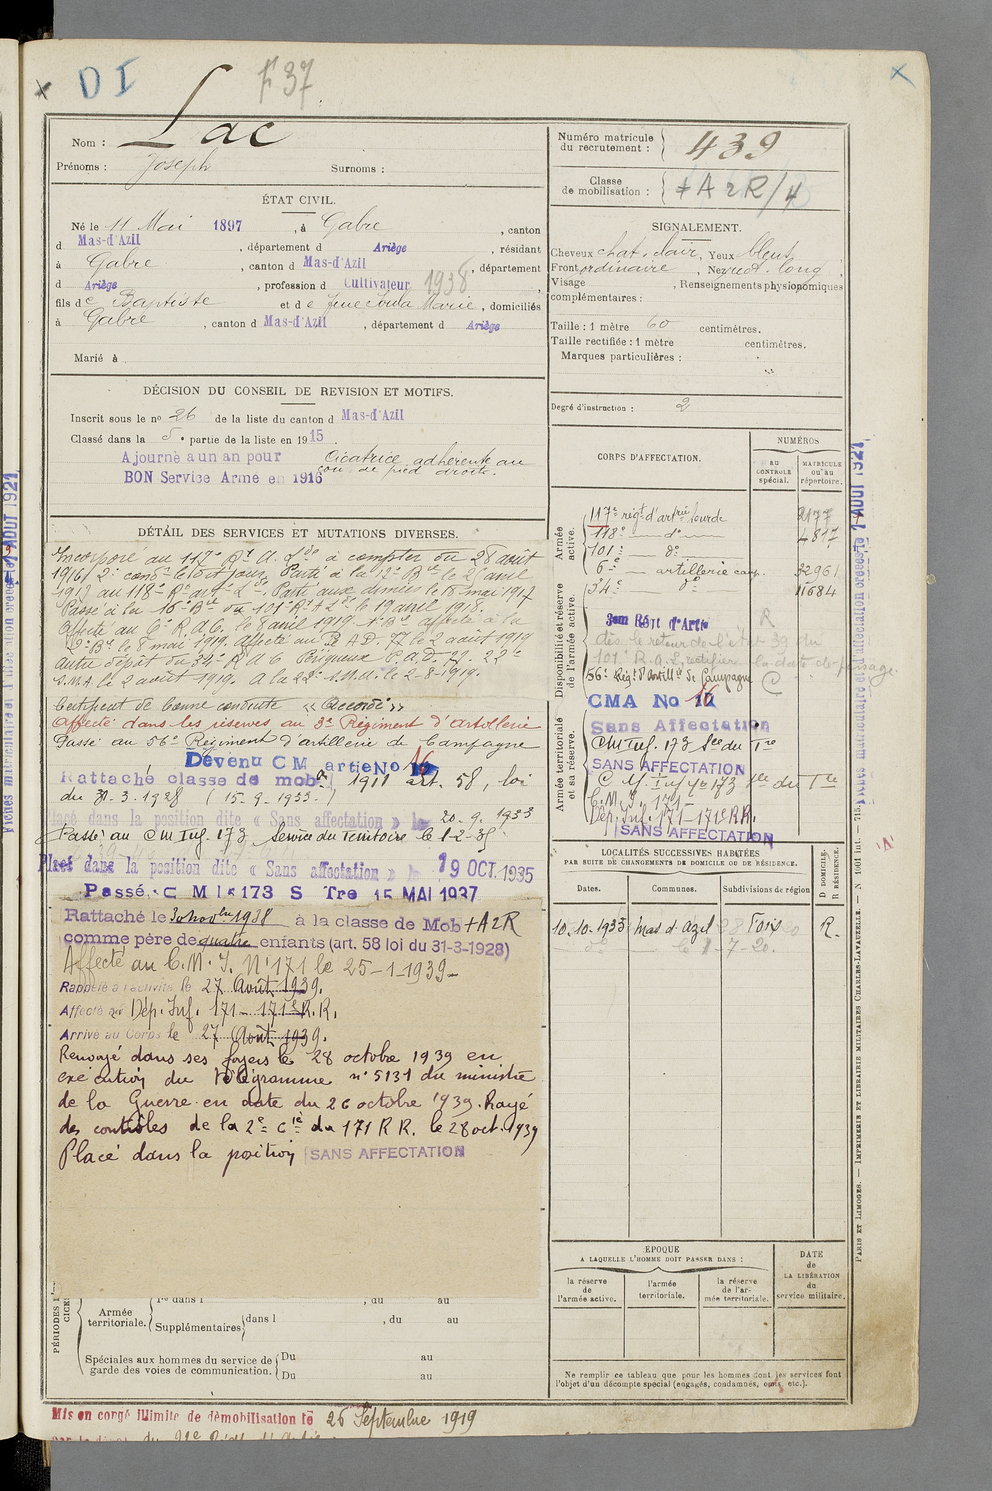 DI
F 37
Nom : Lac
Prénoms : Joseph Surnoms :
Numéro matricule du recrutement : 439
Classe de mobilisation : + A 2 R/4
ÉTAT CIVIL.
Né le 11 Mai 1897, à Gabre, canton
d Mas-d'Azil, département d Ariège, résidant
à Gabre, canton d Mas-d'Azil, département
d Ariège, profession d Cultivateur 1938
fils de Baptiste et de Marie, domiciliés
à Gabre, canton d Mas-d'Azil, département d Ariège
Marié à
SIGNALEMENT.
Cheveux chat. clair, Yeux bleus
Front ordinaire, Nez rect. long,
Visage , Renseignements physiopnomiques
complémentaires :
Taille : 1 mètre 60 centimètres.
Taille rectifiée : 1 mètre centimètres.
Marques particulières :
Degré d'instruction : 2
DÉCISION DU CONSEIL DE REVISION ET MOTIFS.
Inscrit sous le no 26 de la liste du canton d Mas-d'Azil
Classé dans la 5e partie de la liste en 1915
Ajourné a un an pour Cicatrice adhérente au
cou de pied droite.
BON Service Armé en 1916
DÉTAIL DES SERVICES ET MUTATIONS DIVERSES.
Incorporé au 117e Rt A. Lde à compter du 28 août
1916, 2e canr. Passé à la 17e Bie le 21 avril
1917 au 118e R. art. Lde. Parti aux armées le 18 mai 1917
Passé à la 16e Bie du 101e Rt A L le 19 avril 1918.
Affecté au 6e R.A.C. le 8 avril 1919. Affecté à la
Bie le 8 mai 1919. Affecté au P A D. 77 le 2 août 1919
autre dépôt du 34e R A C Périgueux P.A.D. 77. 22e
S.M.A. le 2 août 1919. A la 22e S.M.A. le 2-8-1919.
Certificat de bonne conduite « Accordé »
Affecté dans les réserves au 3e Régiment d'artillerie
Passé au 56e Régiment d'artillerie de Campagne
Devenu C M artie No 16
Rattaché classe de mob. 1911 art. 58, loi
du 31.3.1928 (15-9-1933.)
Placé dans la position dite « Sans affectation » le 20.9.1933
Passé au C M Inf. 173 Service du Territoire le 1-2-35
Placé dans la position dite « Sans affectation » le 19 OCT. 1935
Passé C M I 173 S Tre 15 MAI 1937
Rattaché le 30 novbre 1938 à la classe de Mob + A 2 R
comme père de quatre enfants (art. 58 loi du 31-3-1928)
Affecté au C.M.I. No 171 le 25-1-1939
Rappelé à l'activité le 27 Août 1939.
Affecté au Dép. Inf. 171 - 171e R.R.
Arrivé au Corps le 27 Août 1939.
Renvoyé dans ses foyers le 28 octobre 1939 en
exécution du télégramme no 5131 du ministre
de la Guerre en date du 26 octobre 1939. Rayé
des contrôles de la 2e Cie du 171 R R. le 28 oct. 1939
Placé dans la position SANS AFFECTATION
CORPS D'AFFECTATION.
NUMÉROS
AU CONTRÔLE spécial.
MATRICULE ou au répertoire.
Armée active.
117e régt d'artrie lourde 2177
118e — do — 4817
101e — do
6e — artillerie camp. 32961
34e do 11684
Disponibilité et réserve de l'armée active.
3em Régt d'Artie R
dès le retour de l'état 39 du
101e R.A.L, rectifier la date de passage.
56e Régt d'Artillie de Campagne C
CMA No 16
Armée territoriale et sa réserve.
Sans Affectation
CM Inf. 173 Sce du Tre
SANS AFFECTATION
C M. Inf No 173 Sce du Tre
C.M.I. 171
Dép. Inf. 171 - 171e RR.
SANS AFFECTATION
LOCALITÉS SUCCESSIVES HABITÉES
PAR SUITE DE CHANGEMENTS DE DOMICILE OU DE RÉSIDENCE.
Dates. Communes. Subdivisions de région D DOMICILE. R RÉSIDENCE.
10.10.1933 Mas d'Azil Foix R.
ÉPOQUE
A LAQUELLE L'HOMME DOIT PASSER DANS :
la réserve de l'armée active.
l'armée territoriale.
la réserve de l'armée territoriale.
DATE de LA LIBÉRATION du service militaire.
Ne remplir ce tableau que pour les hommes dont les services font
l'objet d'un décompte spécial (engagés, condamnés, omis, etc.).
Armée territoriale.
dans l , du au
Supplémentaires dans l , du au
Spéciales aux hommes du service de garde des voies de communication.
Du au
Du au
Mis en congé illimité de démobilisation le 26 Septembre 1919
PARIS ET LIMOGES. — IMPRIMERIE ET LIBRAIRIE MILITAIRES CHARLES-LAVAUZELLE. — N° 1001 int. — 715.